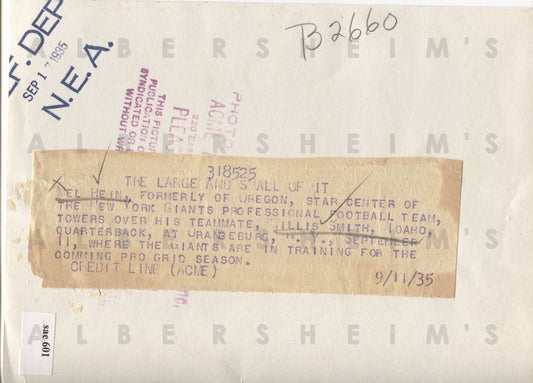 B2660
REF. DEPT.
SEP 17 1935
N.E.A.
THIS PICTURE
PUBLICATION
SYNDICATED OR
WITHOUT
PHOTO
ACME
220 EAS
PLEA
318525
THE LARGE AND SMALL OF IT
MEL HEIN, FORMERLY OF OREGON, STAR CENTER OF
THE NEW YORK GIANTS PROFESSIONAL FOOTBALL TEAM,
TOWERS OVER HIS TEAMMATE, WILLIS SMITH, IDAHO,
QUARTERBACK, AT ORANGEBURG, N.Y., SEPTEMBER
11, WHERE THE GIANTS ARE IN TRAINING FOR THE
COMMING PRO GRID SEASON.
CREDIT LINE (ACME) 9/11/35
sae 601
ALBERSHEIM'S
ALBERSHEIM'S
ALBERSHEIM'S
ALBERSHEIM'S